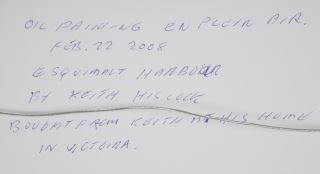 OIL PAINTING EN PLEIN AIR.
FEB. 22 2008
ESQUIMALT HARBOUR
BY KEITH HISCOCK
BOUGHT FROM KEITH AT HIS HOME
IN VICTORIA.